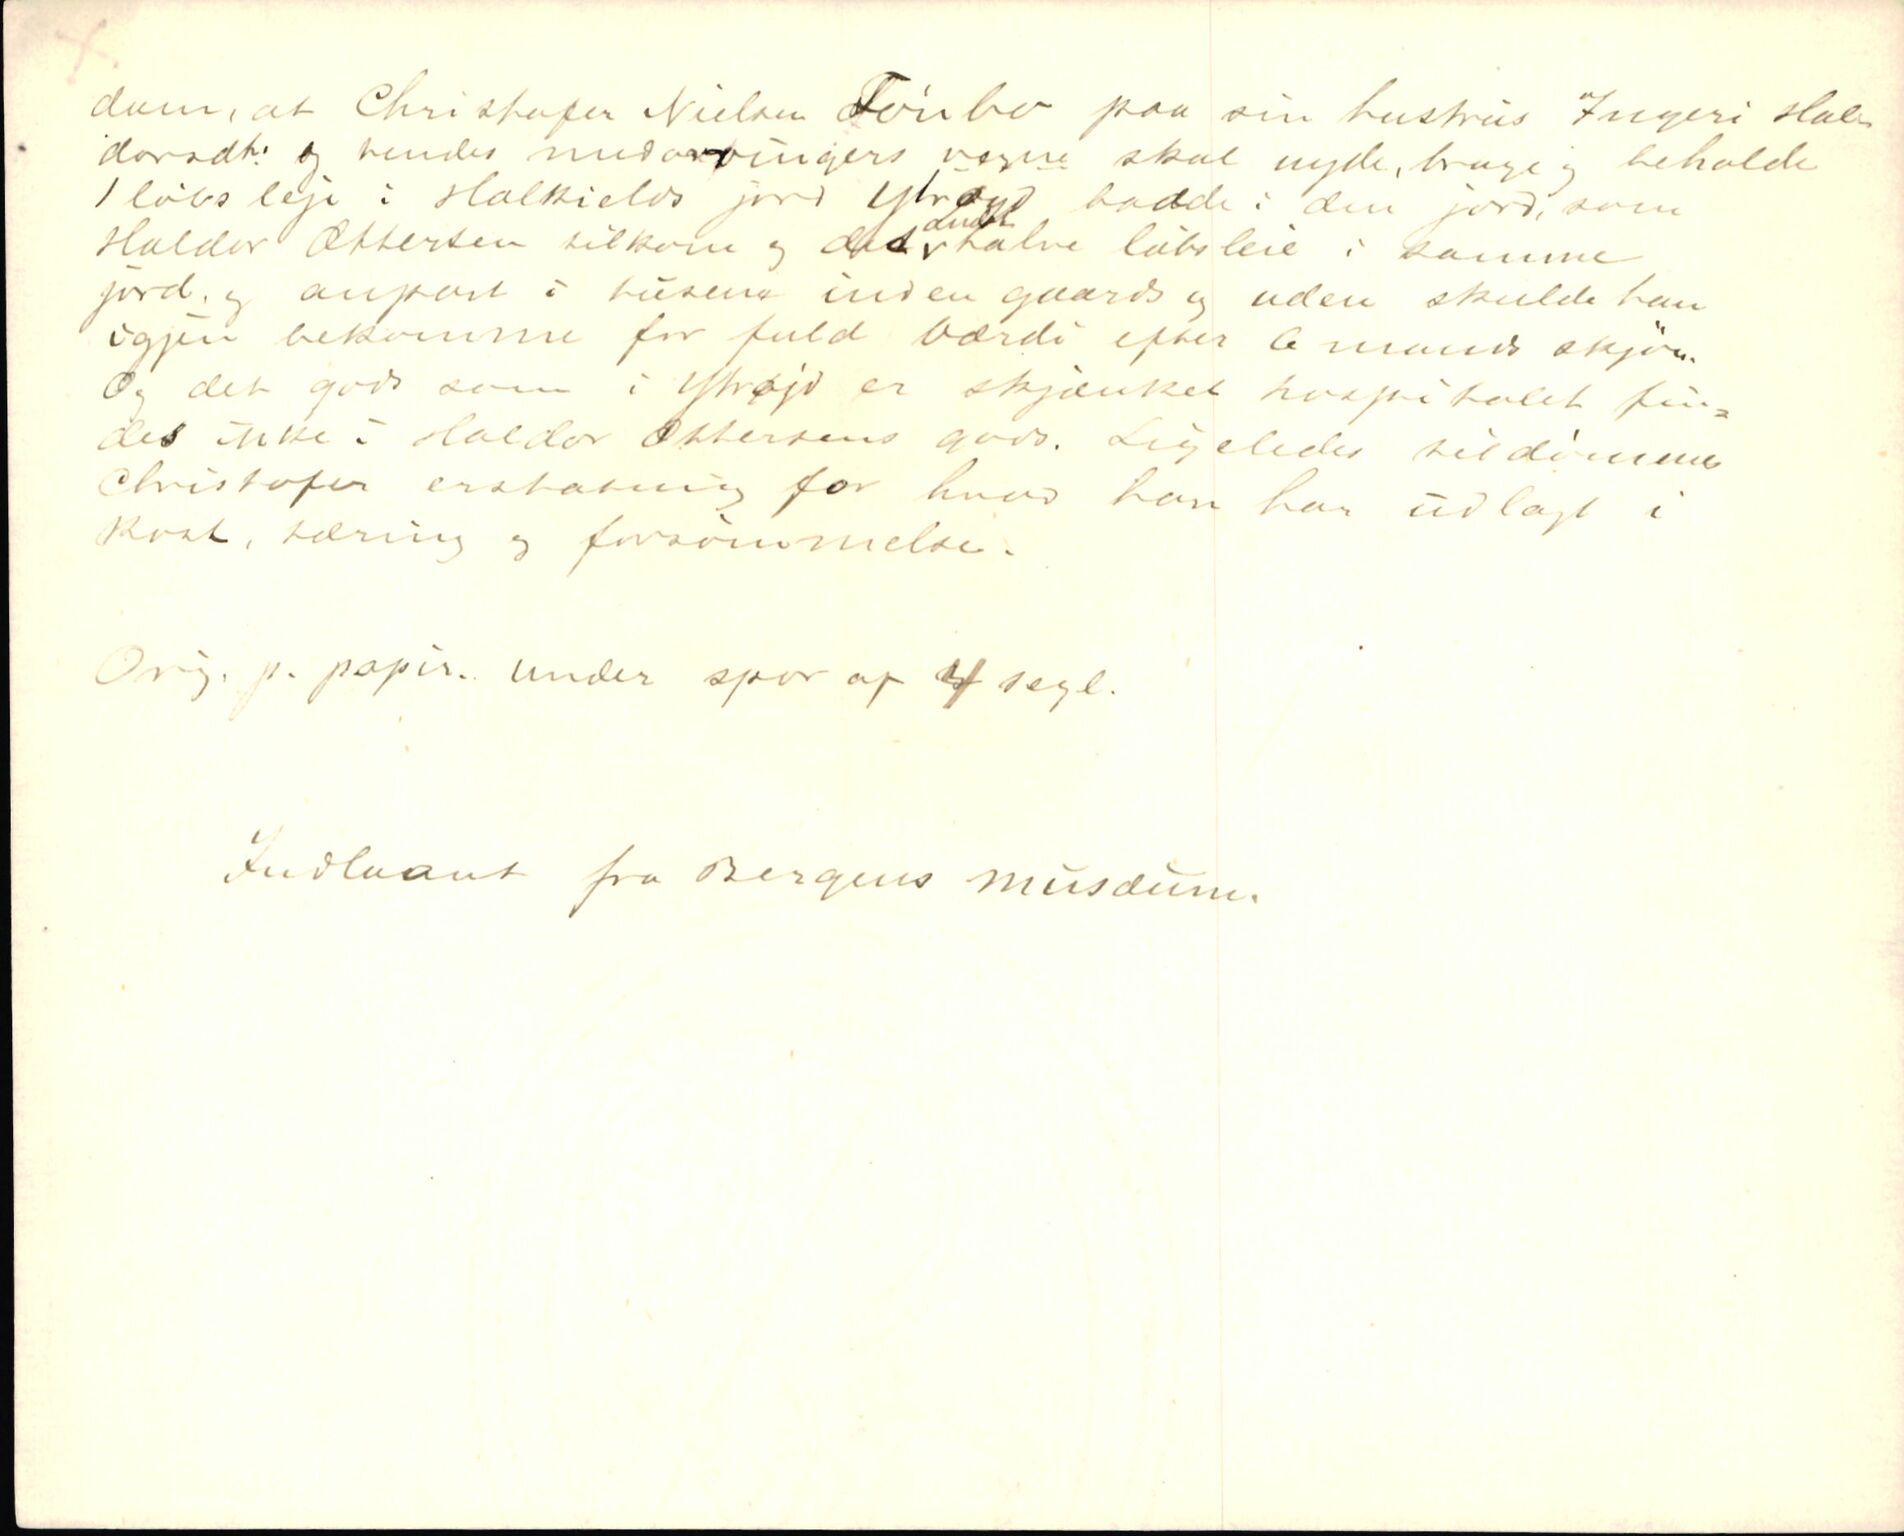 dom, at Christofer Nielsen Tönbo paa sin hustrus Ingeri Hal-
dorsdtr og hendes medarvingers vegne skal nyde, bruge og beholde
1 löbs leje i Halkields jord Ytröyd baade i den jord, som
Haldor Ottersen tilkom og det andet halve löbs leie i samme
jord, og anpart i husene inden gaards og uden skulde han
igjen bekomme for fuld værdi efter 6 mands skjön.
Og det gods som i Ytrøjd er skjænket hospitalet fin-
des ikke i Haldor Ottersens gods. Ligeledes tildömmes
Christofer erstatning for hvad han har udlagt i
kost, tæring og forsömmelse.
Orig. p. papir. under spor af 4 segl.
Indlaant fra Bergens Musæum.